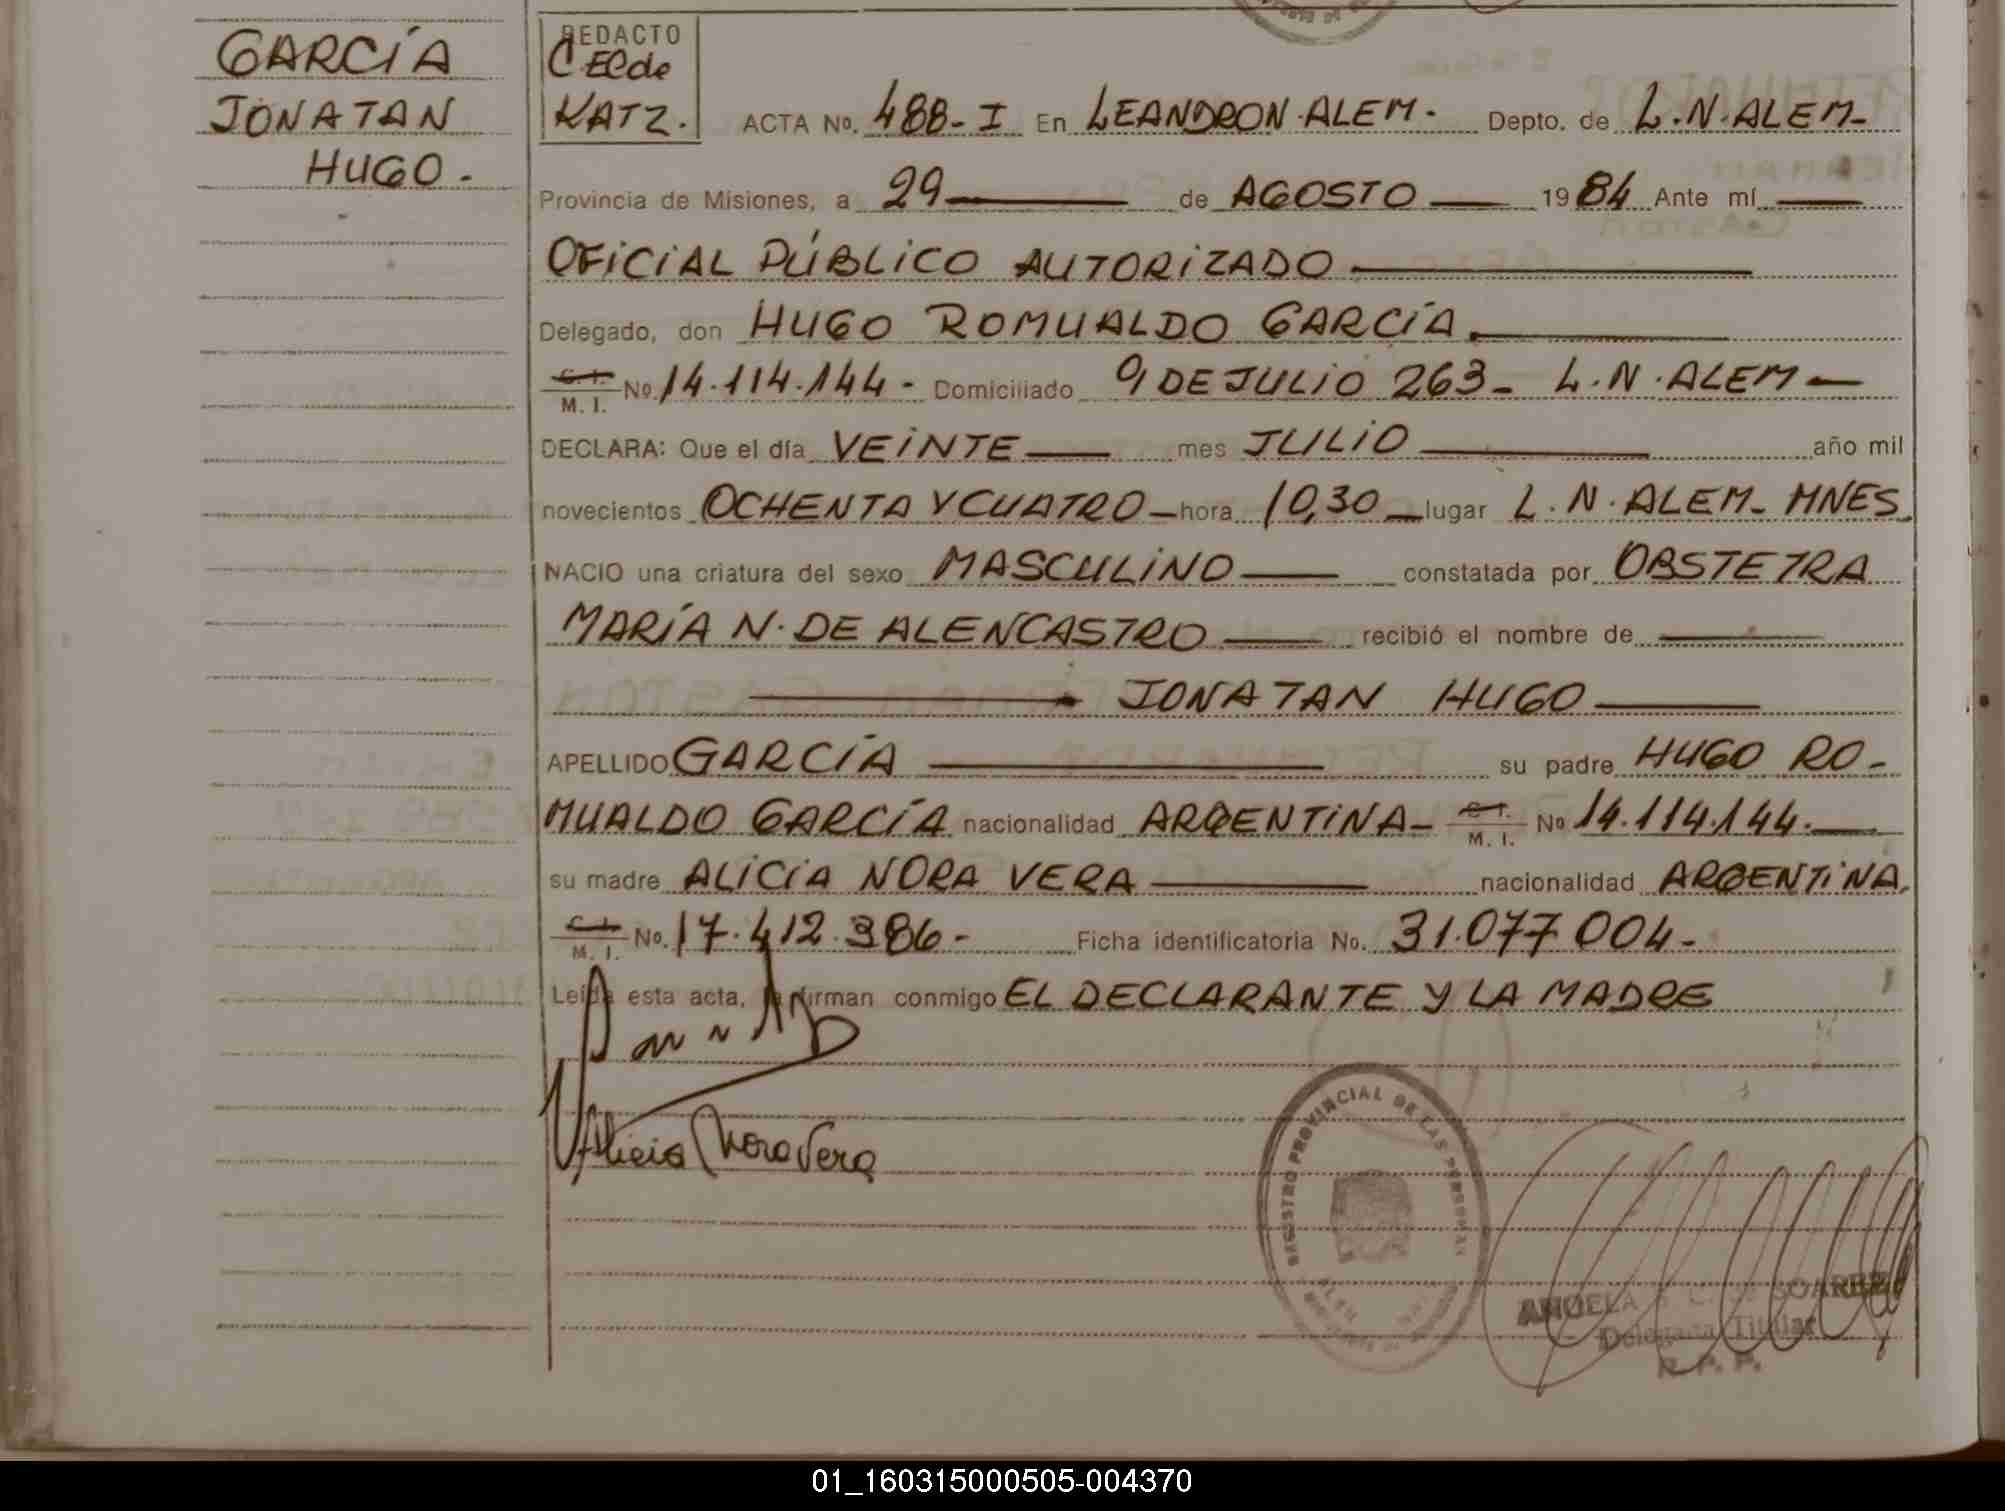 GARCÍA
JONATAN
HUGO.
REDACTO
C. E. C de
KATZ.
ACTA No. 488-I En LEANDRO N. ALEM. Depto. de L.N. ALEM-
Provincia de Misiones, a 29 de AGOSTO 1984 Ante mí
OFICIAL PÚBLICO AUTORIZADO
Delegado, don HUGO ROMUALDO GARCÍA
C. I. M. I. No. 14.114.144- Domiciliado 9 DE JULIO 263- L.N. ALEM-
DECLARA: Que el día VEINTE mes JULIO año mil
novecientos OCHENTA Y CUATRO - hora 10,30 - lugar L.N. ALEM- MNES
NACIO una criatura del sexo MASCULINO constatada por OBSTETRA
MARÍA N. DE ALENCASTRO recibió el nombre de
JONATAN HUGO
APELLIDO GARCÍA su padre HUGO RO-
MUALDO GARCÍA nacionalidad ARGENTINA- C. I. M. I. No 14.114.144.
su madre ALICIA NORA VERA nacionalidad ARGENTINA.
C. I. M. I. No. 17.412.386- Ficha identificatoria No. 31.077.004-
Leída esta acta, la firman conmigo EL DECLARANTE Y LA MADRE
Alicia Nora Vera
REGISTRO PROVINCIAL DE LAS PERSONAS
ANGELA SOAREZ
Delegada Titular
R. P. P.
01_160315000505-004370